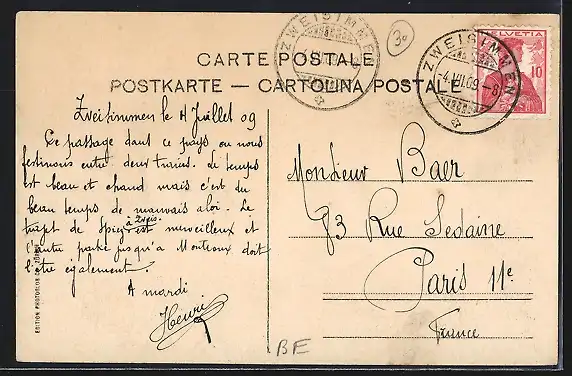 CARTE POSTALE
POSTKARTE — CARTOLINA POSTALE
ZWEISIMMEN
ZWEISIMMEN
-4.VII.09.-8
HELVETIA
10
30
Zweisimmen le 4 Juillet 09
De passage dans ce pays où nous
festinons entre deux trains. Le temps
est beau et chaud mais c'est du
beau temps de mauvais aloi. Le
trajet de Spiez à Zweis. est merveilleux et
l'autre partie jusqu'à Montreux doit
l'être également.
A mardi
Henri
Monsieur Baer
83 Rue Sedaine
Paris 11e
France
EDITION PHOTOGLOB ZURICH
BE